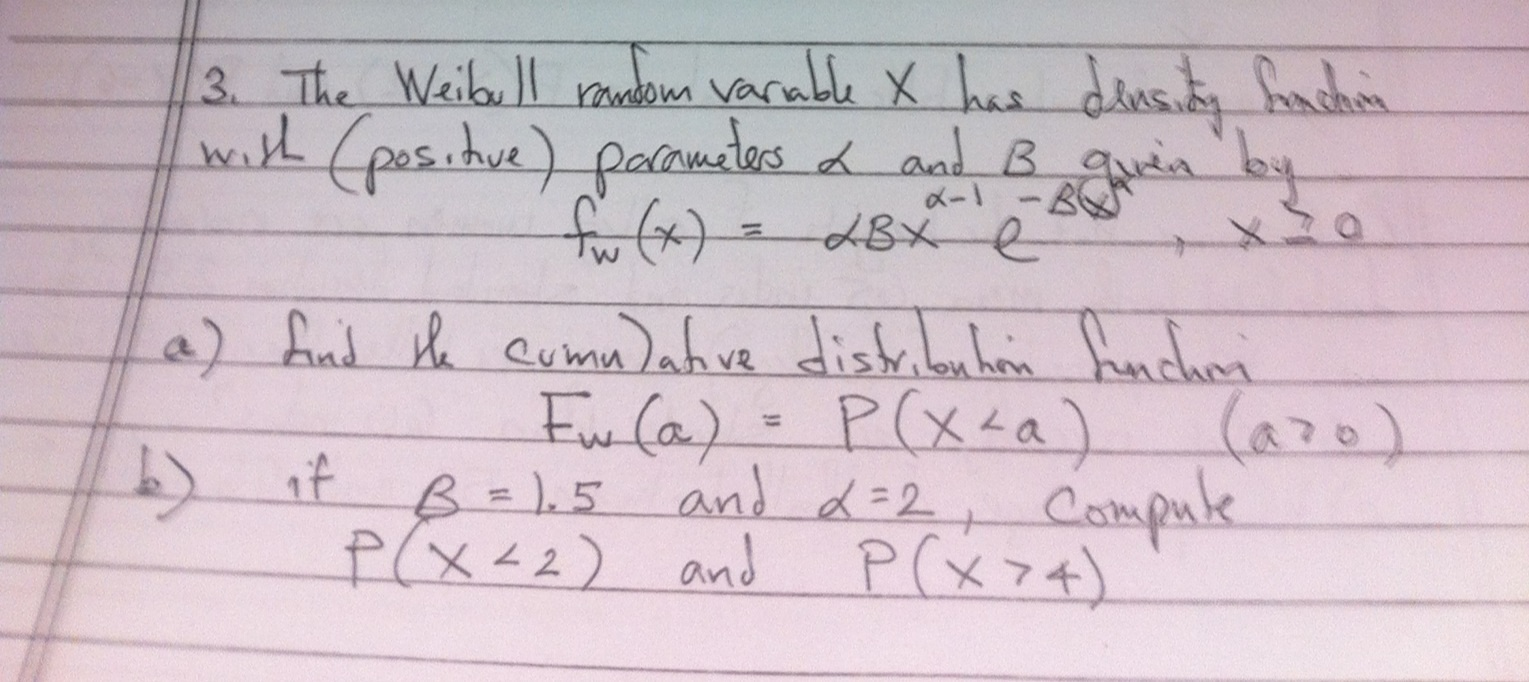 3. The Weibull random variable X has density function
with (positive) parameters α and β given by
f_w(x) = αβx^(α-1) e^(-β(x)^α) , x ≥ 0
a) find the cumulative distribution function
F_w(a) = P(X < a) (a > 0)
b) if β = 1.5 and α = 2, compute
P(X < 2) and P(X > 4)